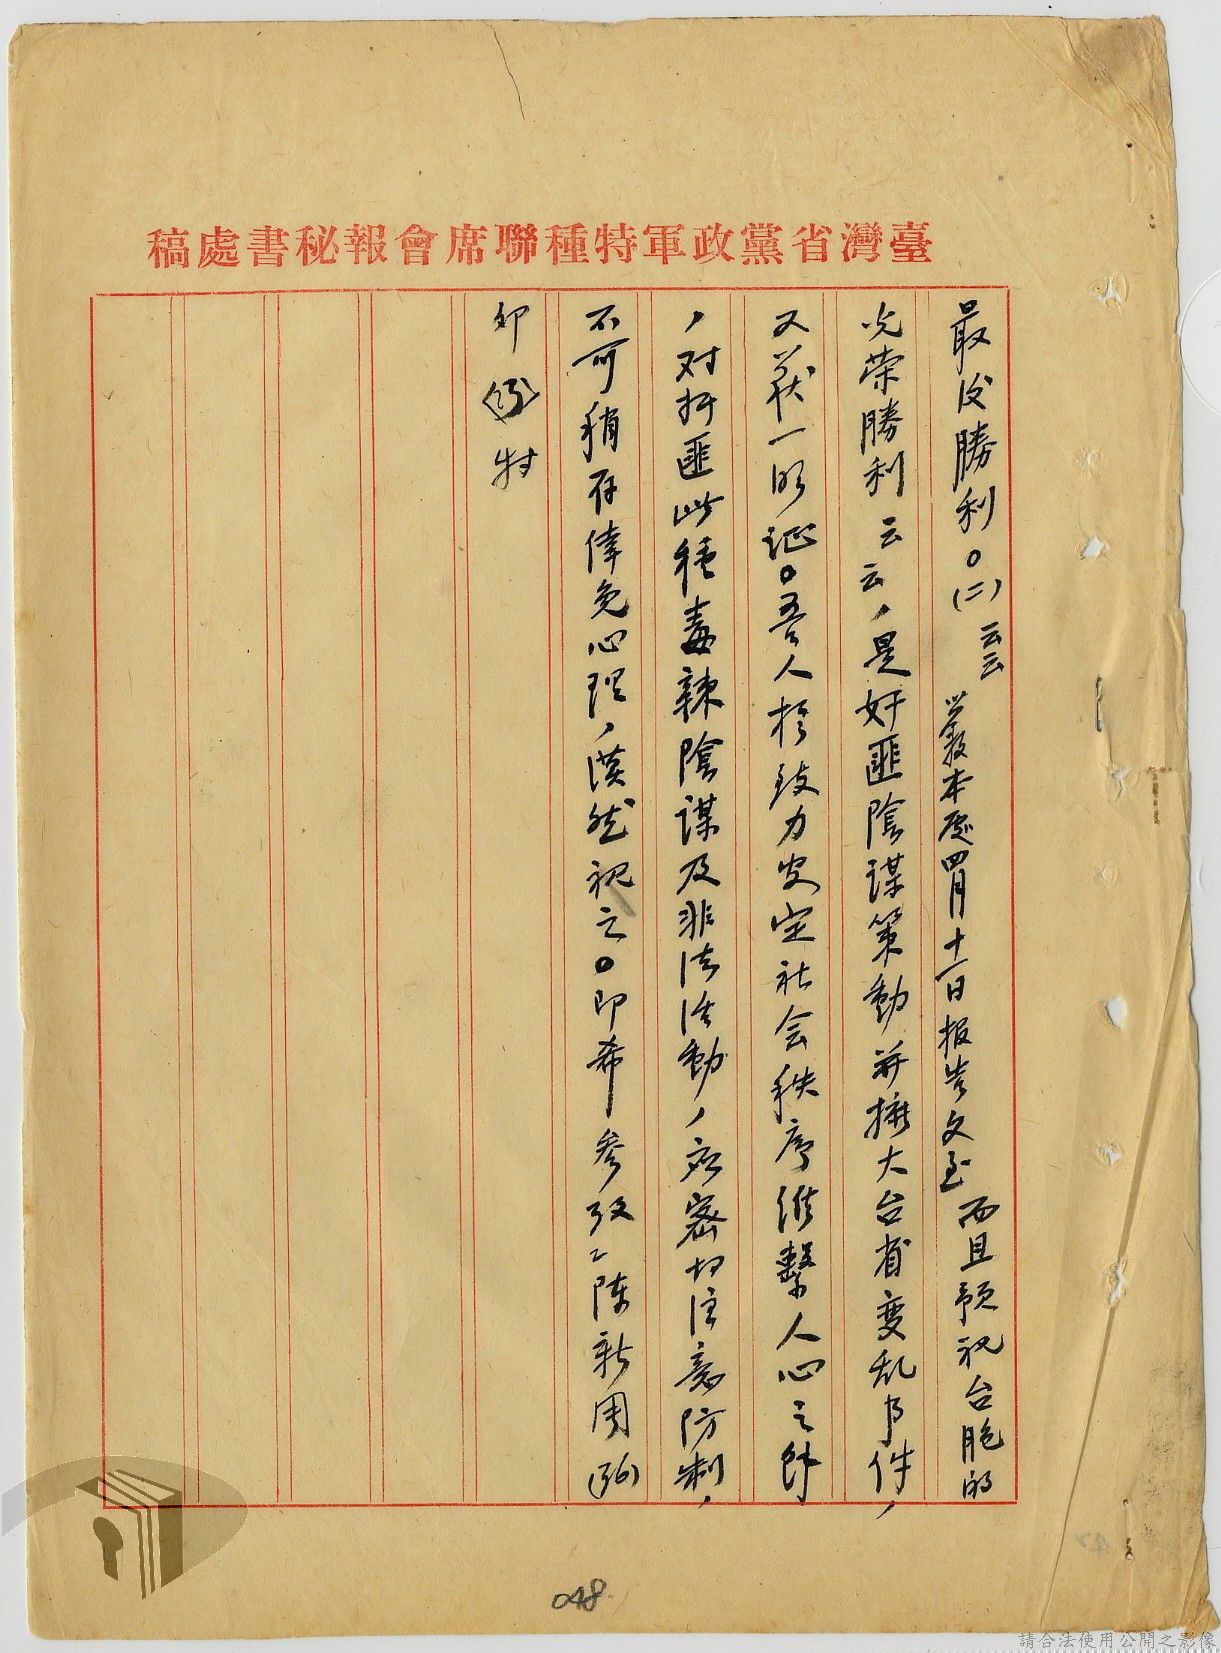 臺灣省黨政軍特種聯席會報秘書處稿
最後勝利。(二)云云 叢本處四月十一日报告文至 而且预祝台胞的
光荣勝利云云，是奸匪陰谋策動並擴大台省变乱事件，
又获一明证。吾人於致力安定社会秩序维繫人心之餘
，对奸匪此種毒辣陰谋及非法活動，应密切注意防制，
不可稍存倖免心理，漠然视之。即希参攷。陈新周
卯 特
048
請合法使用公開之影像